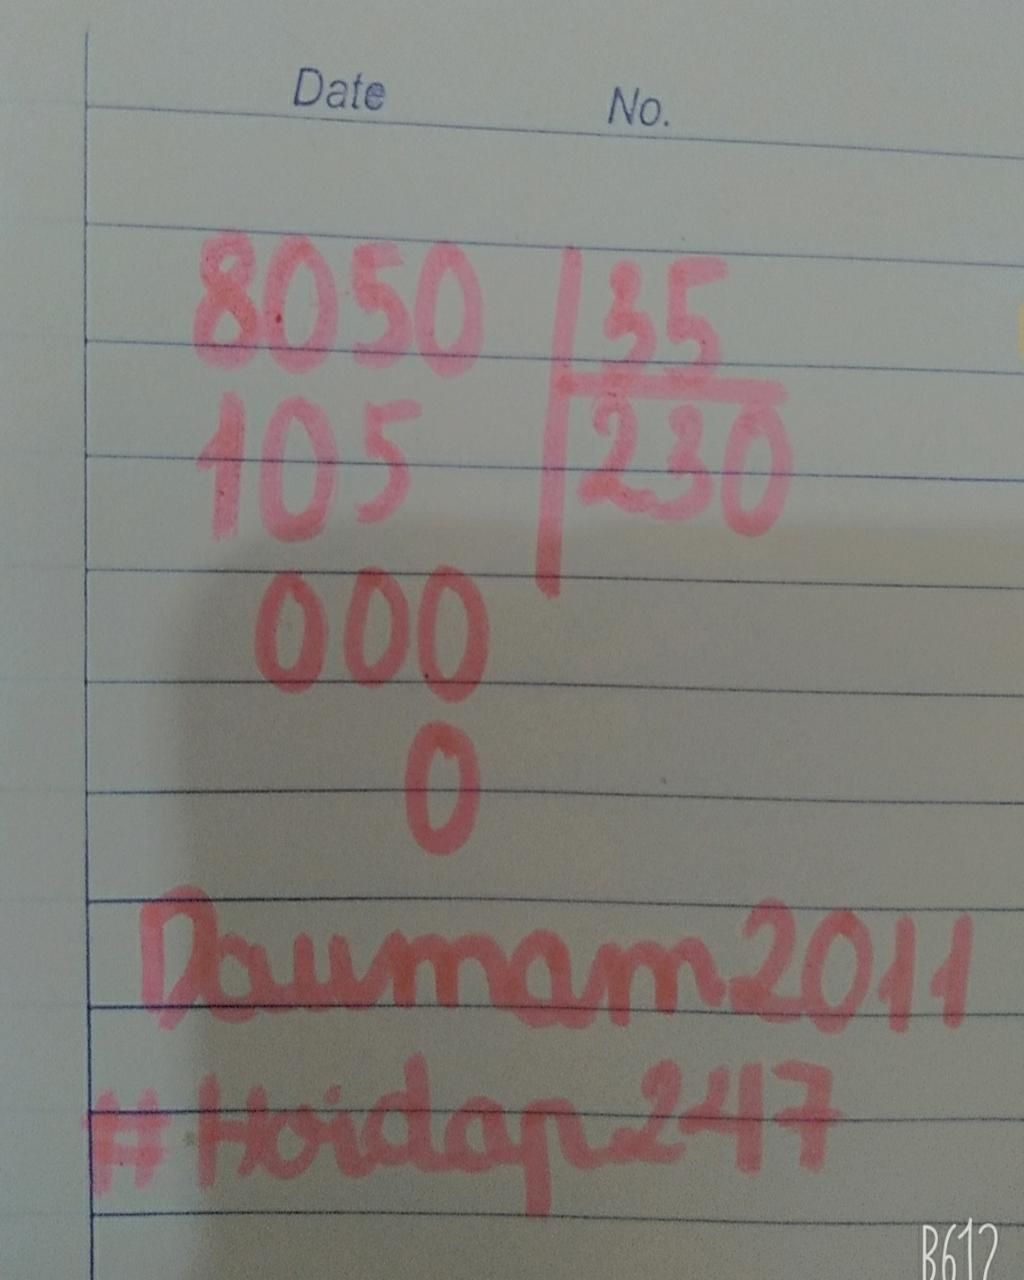 Date No.
8050 35
105 230
000
0
Daumam2011
#Hoidap247
B612